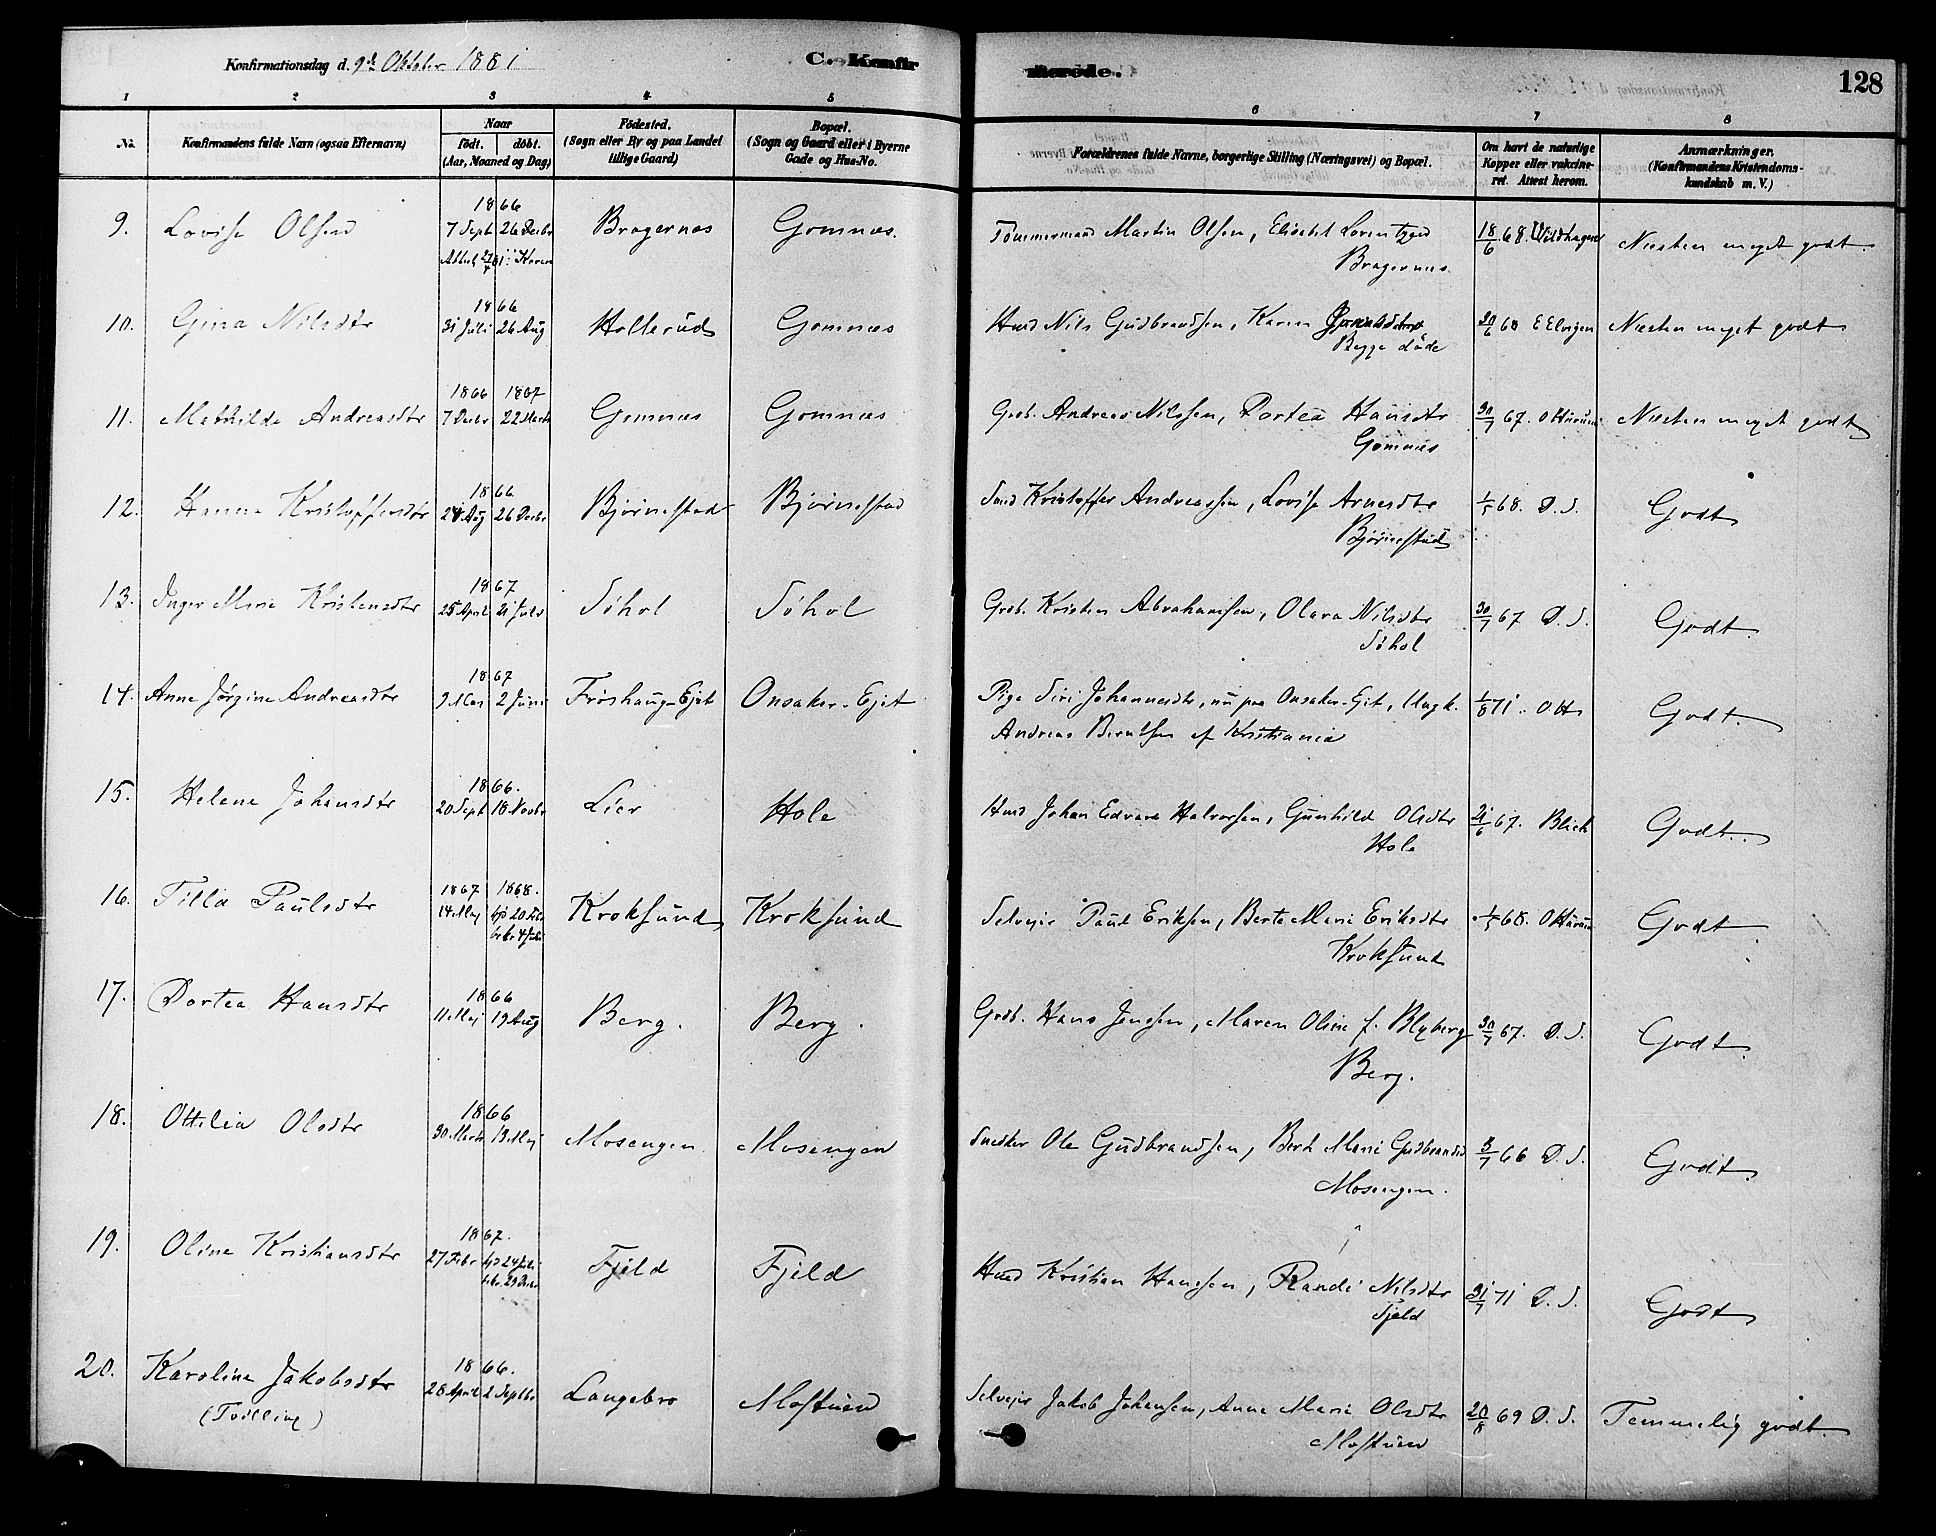 Konfirmationsdag d. 9de Oktober 1881
C. Konfirmerede.
128
1 2 3 4 5 6 7 8
No. Konfirmandens fulde Navn (ogsaa Efternavn) Naar födt. döbt. (Aar, Maaned og Dag) Födested. (Sogn eller By og paa Landet tillige Gaard) Bopæl. (Sogn og Gaard eller i Byerne Gade og Hus-No. Forældrenes fulde Navne, borgerlige Stilling (Næringsvei) og Bopæl. Om havt de naturlige Kopper eller vakcineret. Attest herom. Anmærkninger. (Konfirmandens Kristendomskundskab m. V.)
9. Lovise Olsen 1866 7 Sept 26 Decbr Bragernes Gomnæs. Tømmermand Martin Olsen, Elisabet Bragernes 18/6 68. Wildhagen Næsten meget godt
10. Gina Nilsdtr 1866 31 Juli 26 Aug Hollerud Gomnæs Husmd Nils Gudbrandsen, Karen Begge døde 20/6 68 E Elvigen Næsten meget godt
11. Mathilde Andreasdtr 1866 7 Decbr 1867 22 Marts Gomnæs Gomnæs Grdb. Andreas Nilssen, Dortea Hansdtr Gomnæs 30/7 67. O Næsten meget godt
12. Hanna Kristoffersdtr 1866 24 Aug 26 Decbr Bjørnestad Bjørnestad Kristoffer Andreassen, Lovise Arnesdtr Bjørnestad 68. D. S. Godt
13. Inger Marie Kristensdtr 1867 25 April 21 Juli Søhol Søhol Grdb. Kristen Abrahamsen, Olava Nilsdtr Søhol 30/7 67 D. S. Godt.
14. Anne Jørgine Andreasdtr 1867 9 Mai 2 Juni Frøshaug-Ejet Onsaker-Ejet Pige Siri Johannesdtr, nu paa Onsaker-Eit, Ungk. Andreas Berntsen af Kristiania 1/8 71. O H Godt.
15. Helene Johansdtr 1866. 20 Sept 18 Novbr Lier Hole Husmd Johan Edvard Halvorsen, Gunhild Olsdtr Hole 21/6 67. Blich Godt.
16. Tilla Paulsdtr 1867 14 Maj 1868. hjd 20 Febr bekr 4 Juli Kroksund Kroksund Selvejer Paul Eriksen, Berte Marie Eriksdtr Kroksund 68. O Godt
17. Dortea Hansdtr 1866 11 Maj 19 Aug Berg. Berg. Grdb. Hans Jensen, Maren Oline f. Blyberg Berg. 30/7 67. D. S. Godt.
18. Ottilia Olsdtr 1866 30 Marts 13 Maj Mosengen Mosengen Snedker Ole Gudbrandsen, Berte Marie Gudbrandsd Mosengen. 3/7 66 D. S. Godt.
19. Oline Kristiansdtr 1867. 27 Febr hjd 24 Juli bekr. 29 Decbr Fjeld Fjeld Husmd Kristian Hansen, Randi Nilsdtr Fjeld 31/7 71 D. S. Godt
20. Karoline Jakobsdtr (Tvilling) 1866. 28 April 2 Septbr Langebro Mostuen Selvejer Jakob Johansen, Anne Marie Olsdtr Mostuen 20/8 69 D. S. Temmelig godt.